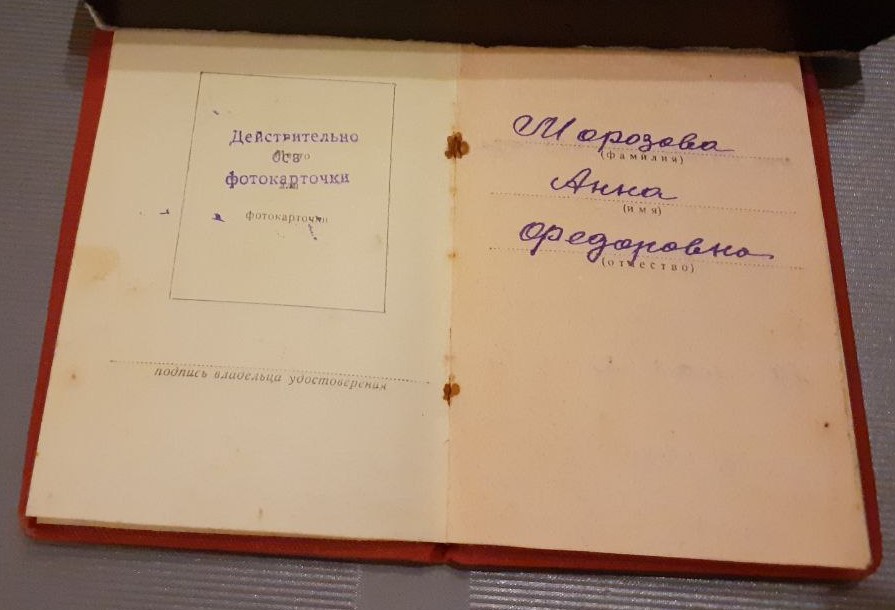 Действительно
без
фотокарточки
фотокарточки
подпись владельца удостоверения
Морозова
(фамилия)
Анна
(имя)
Федоровна
(отчество)